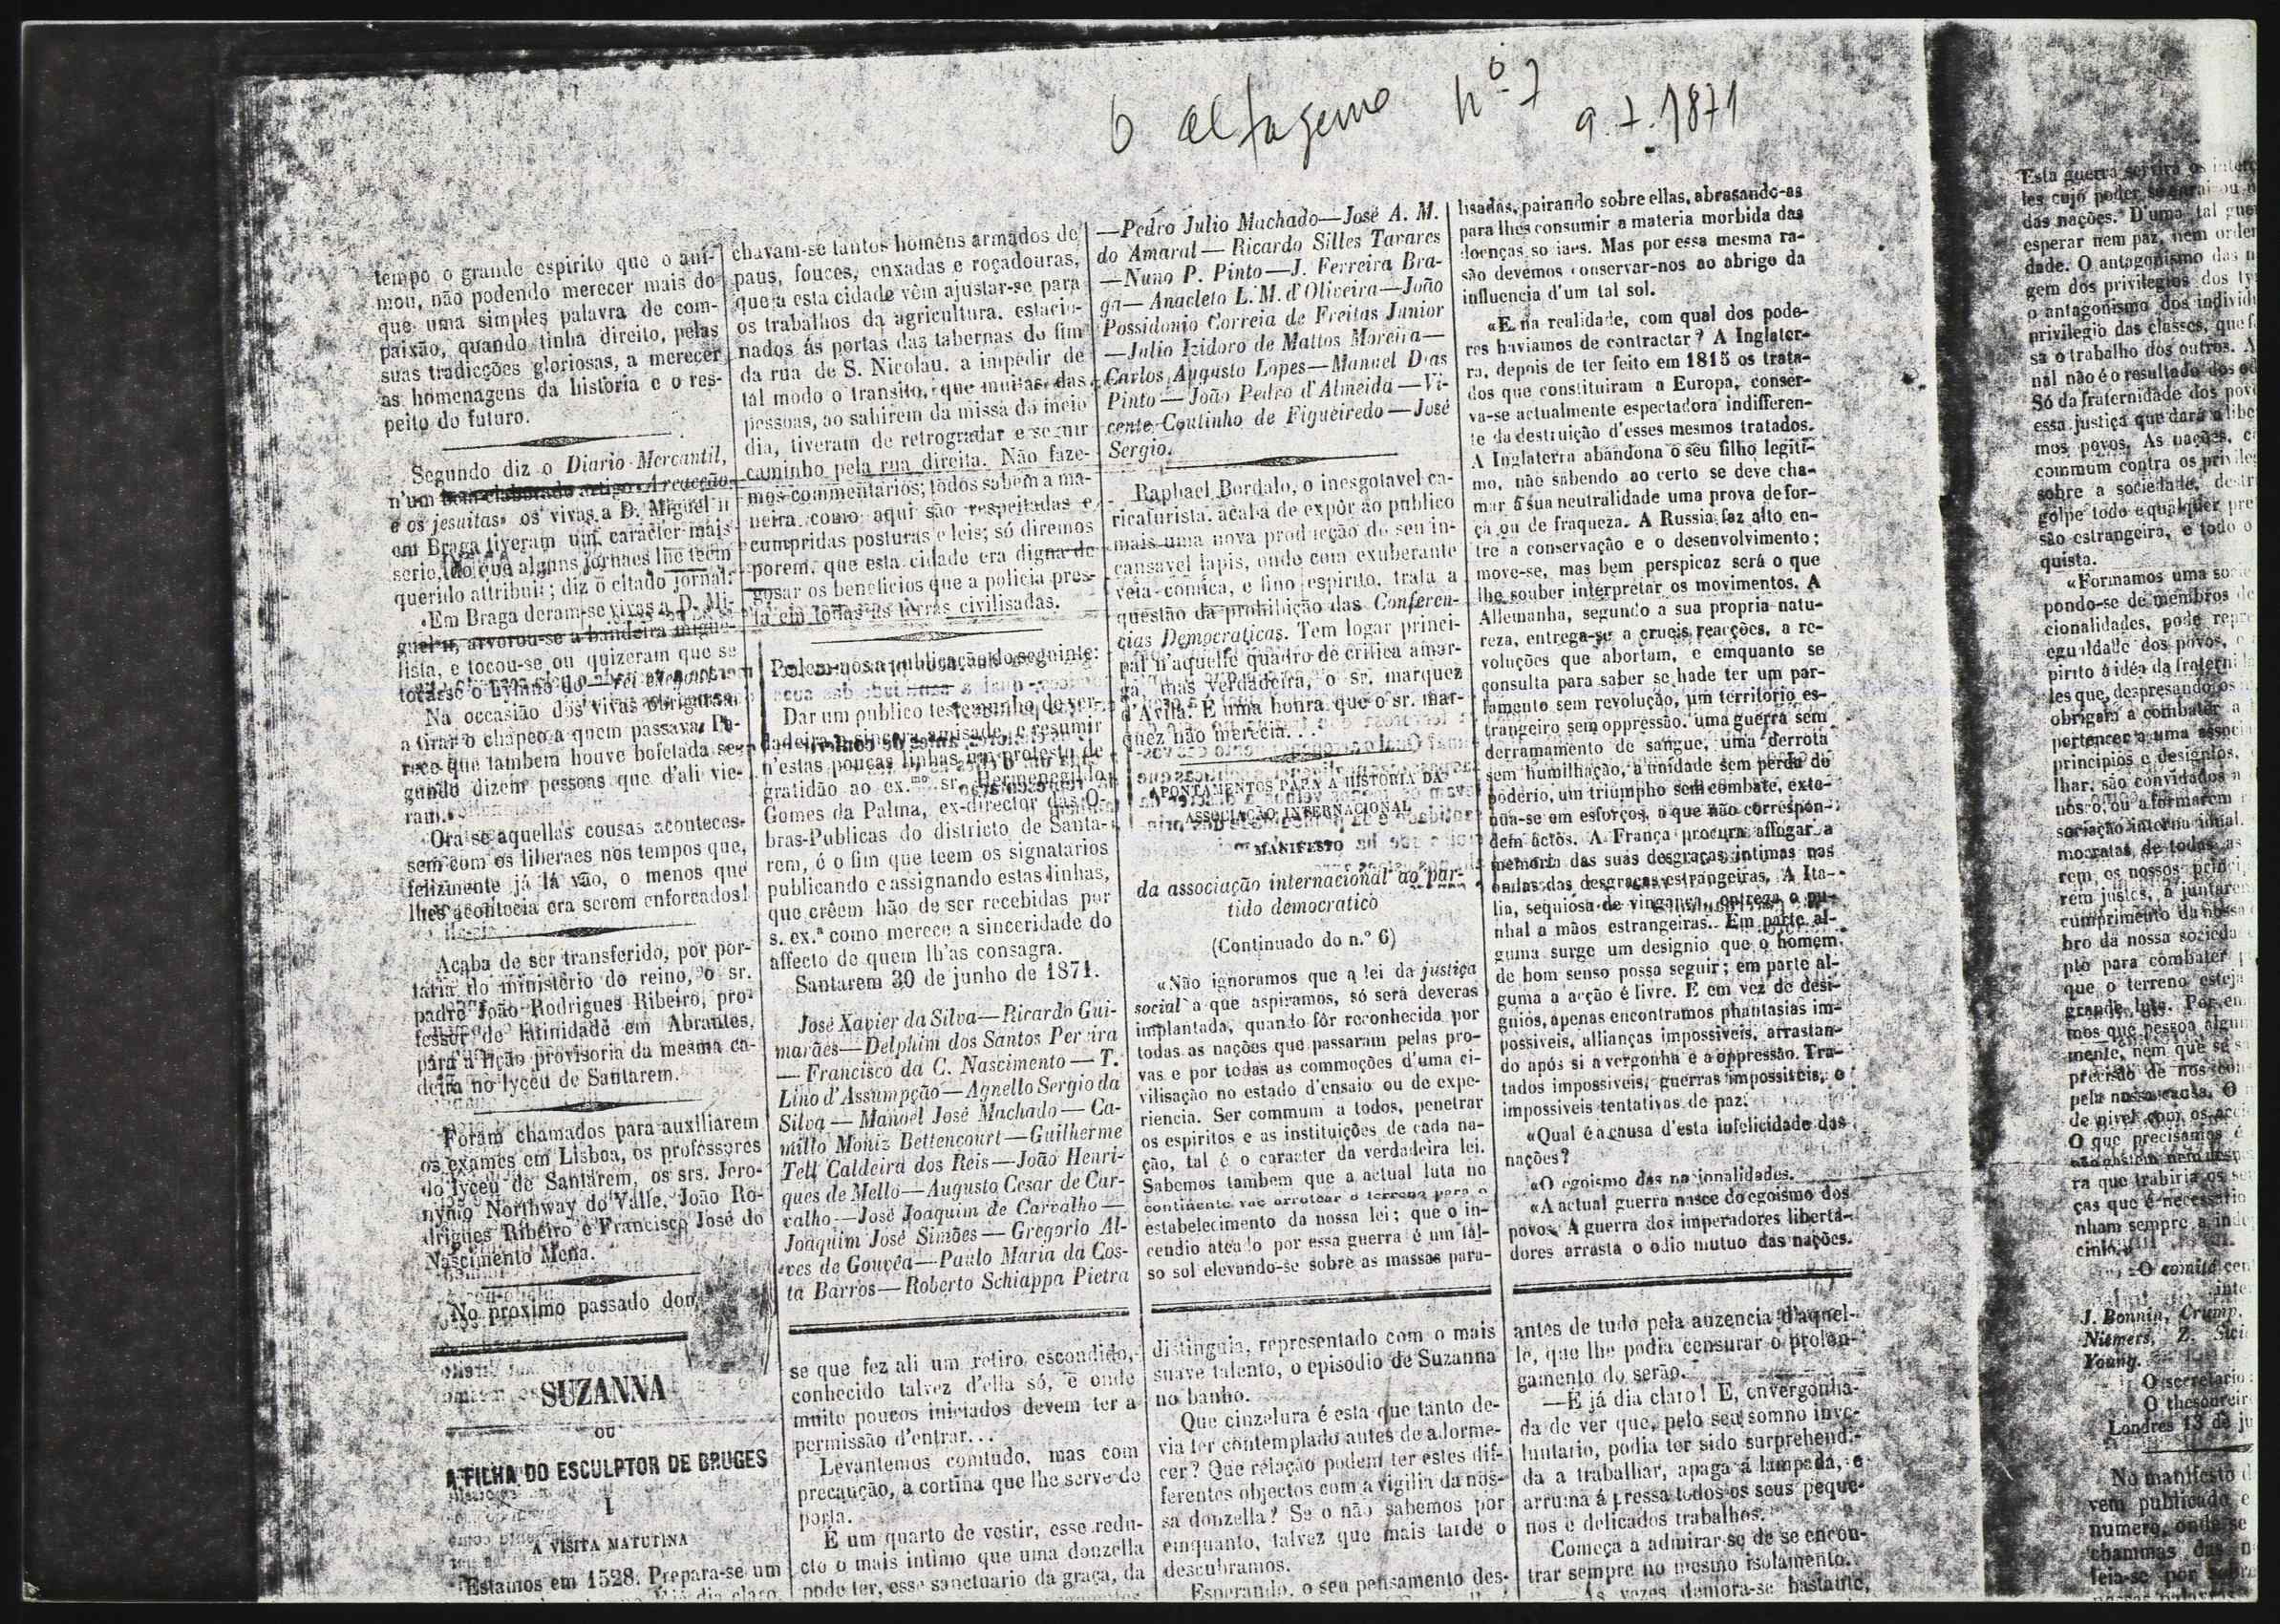 O Alfageme nº 7
9.7.1871
tempo o grande espirito que o ani-
mou, não podendo merecer mais do
que uma simples palavra de com-
paixão, quando tinha direito, pelas
suas tradicções gloriosas, a merecer
as homenagens da historia e o res-
peito do futuro.
Segundo diz o Diario Mercantil,
n'um bem elaborado artigo A reacção
e os jesuitas» os vivas a D. Miguel II
em Braga tiveram um caracter mais
serio, do que alguns jornaes lhe teem
querido attribuir; diz o citado jornal:
«Em Braga deram-se vivas a D. Mi-
guel II, arvorou-se a bandeira migue-
lista, e tocou-se ou quizeram que se
tocasse o hymno do
Na occasião dos vivas obrigavam
a tirar o chapeo a quem passava. Pa-
rece que tambem houve bofetada se-
gundo dizem pessoas que d'ali vie-
ram.
Ora se aquellas cousas acontees-
sem com os liberaes nos tempos que,
felizmente já lá vão, o menos que
lhes acontecia era serem enforcados!
Acaba de ser transferido, por por-
taria do ministerio do reino, o sr.
padre João Rodrigues Ribeiro, pro-
fessor de latinidade em Abrantes,
para a lição provisoria da mesma ca-
deira no lyceu de Santarem.
Foram chamados para auxiliarem
os exames em Lisboa, os professores
do lyceu de Santarem, os srs. Jero-
nymo Northway do Valle, João Ro-
drigues Ribeiro e Francisco José do
Nascimento Mena.
No proximo passado dom
SUZANNA
OU
A FILHA DO ESCULPTOR DE BRUGES
I
A VISITA MATUTINA
Estamos em 1528. Prepara-se um
chavam-se tantos homens armados de
paus, fouces, enxadas e roçadouras,
que a esta cidade vêm ajustar-se para
os trabalhos da agricultura, estacio-
nados ás portas das tabernas do fim
da rua de S. Nicolau, a impedir de
tal modo o transito, que muitas das
pessoas, ao sahirem da missa do meio
dia, tiveram de retrogradar e seguir
caminho pela rua direita. Não faze-
mos commentarios; todos sabem a ma-
neira como aqui são respeitadas e
cumpridas posturas e leis; só diremos
porem, que esta cidade era digna de
gosar os beneficios que a policia pres-
ta em todas as terras civilisadas.
Pedem-nos a publicação do seguinte:
Dar um publico testemunho de ver-
dadeira e sincera amisade, e resumir
n'estas poucas linhas um protesto de
gratidão ao ex.mo sr. Hermenegildo
Gomes da Palma, ex-director das O-
bras-Publicas do districto de Santa-
rem, é o fim que teem os signatarios
publicando e assignando estas linhas,
que crêem hão de ser recebidas por
s. ex.ª como merece a sinceridade do
affecto de quem lh'as consagra.
Santarem 30 de junho de 1871.
José Xavier da Silva—Ricardo Gui-
marães—Delphim dos Santos Pereira
—Francisco da C. Nascimento—T.
Lino d'Assumpção—Agnello Sergio da
Silva—Manoel José Machado—Ca-
millo Moniz Bettencourt—Guilherme
Tell Caldeira dos Reis—João Henri-
ques de Mello—Augusto Cesar de Car-
valho—José Joaquim de Carvalho—
Joaquim José Simões—Gregorio Al-
ves de Gouvêa—Paulo Maria da Cos-
ta Barros—Roberto Schiappa Pietra
se que fez ali um retiro escondido,
conhecido talvez d'ella só, e onde
muito poucos iniciados devem ter a
permissão d'entrar...
Levantemos comtudo, mas com
precaução, a cortina que lhe serve de
porta.
É um quarto de vestir, esse redu-
cto o mais intimo que uma donzella
pode ter, esse sanctuario da graça, da
—Pedro Julio Machado—José A. M.
do Amaral—Ricardo Silles Tavares
—Nuno P. Pinto—J. Ferreira Bra-
ga—Anacleto L. M. d'Oliveira—João
Possidonio Correia de Freitas Junior
—Julio Izidoro de Mattos Moreira—
Carlos Augusto Lopes—Manuel Dias
Pinto—João Pedro d'Almeida—Vi-
cente Coutinho de Figueiredo—José
Sergio.
Raphael Bordalo, o inesgotavel ca-
ricaturista, acaba de expôr ao publico
mais uma nova producção do seu in-
cansavel lapis, onde com exuberante
veia comica, e fino espirito, trata a
questão da prohibição das Conferen-
cias Democraticas. Tem logar princi-
pal n'aquelle quadro de critica amar-
ga, mas verdadeira, o sr. marquez
d'Avila. É uma honra que o sr. mar-
quez não merecia...
APONTAMENTOS PARA A HISTORIA DA
ASSOCIAÇÃO INTERNACIONAL
MANIFESTO
da associação internacional ao par-
tido democratico
(Continuado do n.º 6)
«Não ignoramos que a lei da justiça
social a que aspiramos, só será deveras
implantada, quando fôr reconhecida por
todas as nações que passaram pelas pro-
vas e por todas as commoções d'uma ci-
vilisação no estado d'ensaio ou de expe-
riencia. Ser commum a todos, penetrar
os espiritos e as instituições de cada na-
ção, tal é o caracter da verdadeira lei.
Sabemos tambem que a actual luta no
continente vae arrotear o terreno para o
estabelecimento da nossa lei; que o in-
cendio ateado por essa guerra é um fal-
so sol elevando-se sobre as massas para-
distinguia, representado com o mais
suave talento, o episodio de Suzanna
no banho.
Que cinzelura é esta que tanto de-
via ter contemplado antes de adorme-
cer? Que relação podem ter estes dif-
ferentes objectos com a vigilia da nos-
sa donzella? Se o não sabemos por
emquanto, talvez que mais tarde o
descubramos.
Esperando, o seu pensamento des-
lisadas, pairando sobre ellas, abrasando-as
para lhes consumir a materia morbida das
doenças sociaes. Mas por essa mesma ra-
são devemos conservar-nos ao abrigo da
influencia d'um tal sol.
«E na realidade, com qual dos pode-
res haviamos de contractar? A Inglater-
ra, depois de ter feito em 1815 os trata-
dos que constituiram a Europa, conser-
va-se actualmente espectadora indifferen-
te da destruição d'esses mesmos tratados.
A Inglaterra abandona o seu filho legiti-
mo, não sabendo ao certo se deve cha-
mar á sua neutralidade uma prova de for-
ça ou de fraqueza. A Russia faz alto en-
tre a conservação e o desenvolvimento;
move-se, mas bem perspicaz será o que
lhe souber interpretar os movimentos. A
Allemanha, segundo a sua propria natu-
reza, entrega-se a crueis reacções, a re-
voluções que abortam, e emquanto se
consulta para saber se hade ter um par-
lamento sem revolução, um territorio es-
trangeiro sem oppressão, uma guerra sem
derramamento de sangue, uma derrota
sem humilhação, a unidade sem perda do
poderio, um triumpho sem combate, exte-
nua-se em esforços, a que não correspon-
dem actos. A França procura affogar a
memoria das suas desgraças intimas nas
ondas das desgraças estrangeiras. A Ita-
lia, sequiosa de vingança, entrega o pu-
nhal a mãos estrangeiras. Em parte al-
guma surge um designio que o homem
de bom senso possa seguir; em parte al-
guma a acção é livre. E em vez de desi-
gnios, apenas encontramos phantasias im-
possiveis, allianças impossiveis, arrastan-
do após si a vergonha e a oppressão. Tra-
tados impossiveis, guerras impossiveis, e
impossiveis tentativas de paz.
«Qual é a causa d'esta infelicidade das
nações?
«O egoismo das nacionalidades.
«A actual guerra nasce do egoismo dos
povos. A guerra dos imperadores liberta-
dores arrasta o odio mutuo das nações.
antes de tudo pela auzencia d'aquel-
le, que lhe podia censurar o prolon-
gamento do serão.
—É já dia claro! E, envergonha-
da de ver que, pelo seu somno invo-
luntario, podia ter sido surprehendi-
da a trabalhar, apaga a lampada, e
arruma á pressa todos os seus peque-
nos e delicados trabalhos.
Começa a admirar-se de se encon-
trar sempre no mesmo isolamento.
Ás vezes demora-se bastante,
Esta guerra servirá os intere
les cujo poder
das nações. D'uma tal gue
esperar nem paz, nem orde
dade. O antagonismo das n
gem dos privilegios dos ty
o antagonismo dos individ
privilegio das classes, que f
sa o trabalho dos outros. A
nal não é o resultado dos od
Só da fraternidade dos pov
essa justiça que dará a libe
mos povos. As nações, c
commum contra os privileg
sobre a sociedade, destr
golpe todo e qualquer pre
são estrangeira, e todo o
quista.
«Formamos uma soci
pondo-se de membros de
cionalidades, pode repre
egualdade dos povos, e
pirito á idéa da fraterni
les que, despresando os
obrigam a combater a
pertencer a uma associ
principios e designios,
lhar, são convidados a
nosco, ou a formarem
sociação internacional.
mocratas, de todas as
rem os nossos princi
rem justos, a juntarem
cumprimento da nossa
bro da nossa socieda
pto para combater
que o terreno esteja
grande luta. Por em
mos que pessoa algum
mente, nem que se s
precisão de nos
pela nossa causa. O
de nivel com os
O que precisamos é
ra que trabiria os se
ças que é necessario
nham sempre a inde
cinto.
O comité cen
inte
J. Bonnin, Crump,
Niemers, Z.
Young.
O secretario
O thesoureir
Londres 13 de ju
No manifesto d
vem publicado e
numero, onde se
chammas das n
leia-se por sobre